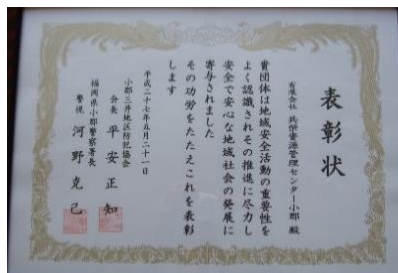 表彰状
有限会社 共栄資源管理センター小郡 殿
貴団体は地域安全活動の重要性を
よく認識されその推進に尽力し
安全で安心な地域社会の発展に
寄与されました
その功労をたたえこれを表彰
します
平成二十七年五月二十一日
小郡三井地区防犯協会
会長 平安正知
福岡県小郡警察署長
警視 河野克己